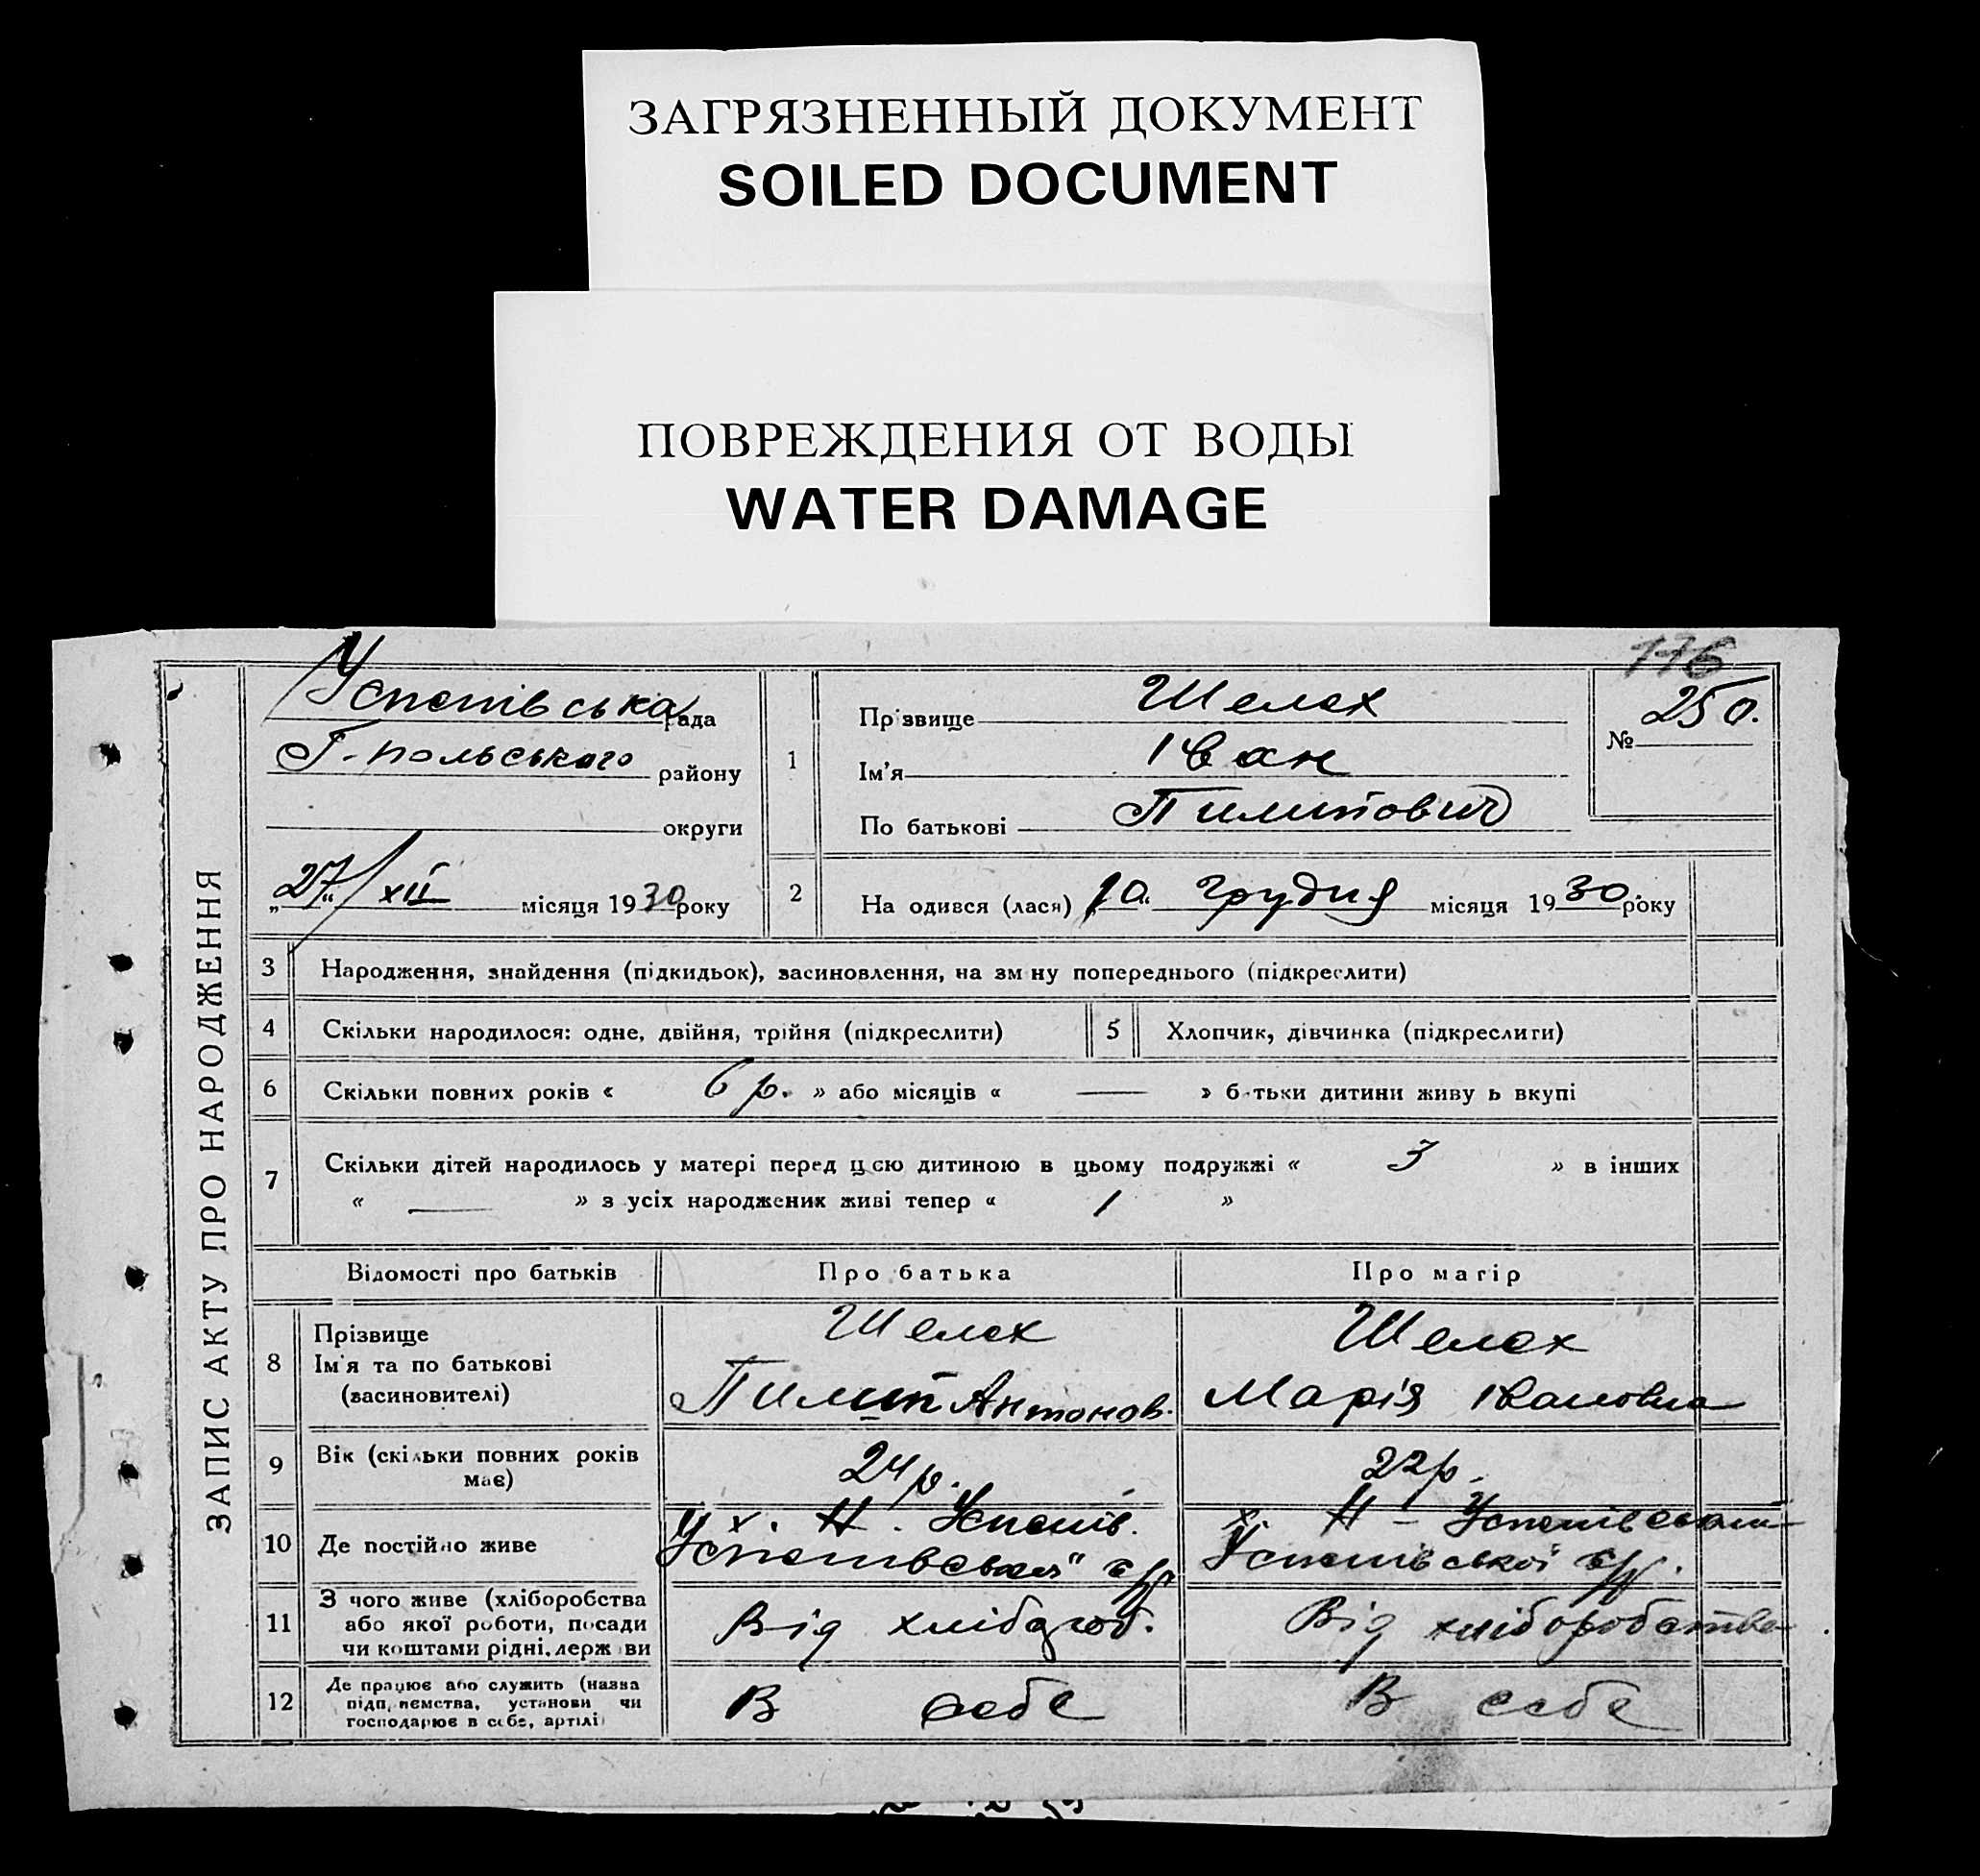 ЗАГРЯЗНЕННЫЙ ДОКУМЕНТ
SOILED DOCUMENT
ПОВРЕЖДЕНИЯ ОТ ВОДЫ
WATER DAMAGE
176
ЗАПИС АКТУ ПРО НАРОДЖЕННЯ
Успенівська рада
Г-польського району
округи
„27“ XII місяця 1930 року
1
Прізвище Шелех
Ім'я Іван
По батькові Пилипович
№ 250.
2
На одився (лася) „10“ грудня місяця 1930 року
3 Народження, знайдення (підкидьок), засиновлення, на зм ну попереднього (підкреслити)
4 Скільки народилося: одне, двійня, трійня (підкреслити) 5 Хлопчик, дівчинка (підкреслити)
6 Скільки повних років « 6 р. » або місяців « — » б тьки дитини живу ь вкупі
7 Скільки дітей народилось у матері перед цєю дитиною в цьому подружжі « 3 » в інших
« — » з усіх народжених живі тепер « 1 »
Відомості про батьків Про батька Про матір
8 Прізвище Шелех Шелех
Ім'я та по батькові
(засиновителі) Пилип Антонов. Марія Івановна
9 Вік (скільки повних років має) 24 р. 22 р.
10 Де постійно живе х. Н. Успенів. х. Н - Успенівський
Успенівської с/р Успенівської с/р.
11 З чого живе (хліборобства
або якої роботи, посади
чи коштами рідні, держ ви Від хлібороб. Від хліборобства
12 Де працює або служить (назва
підп иємства, установи чи
господарює в себе, артілі) В себе В себе